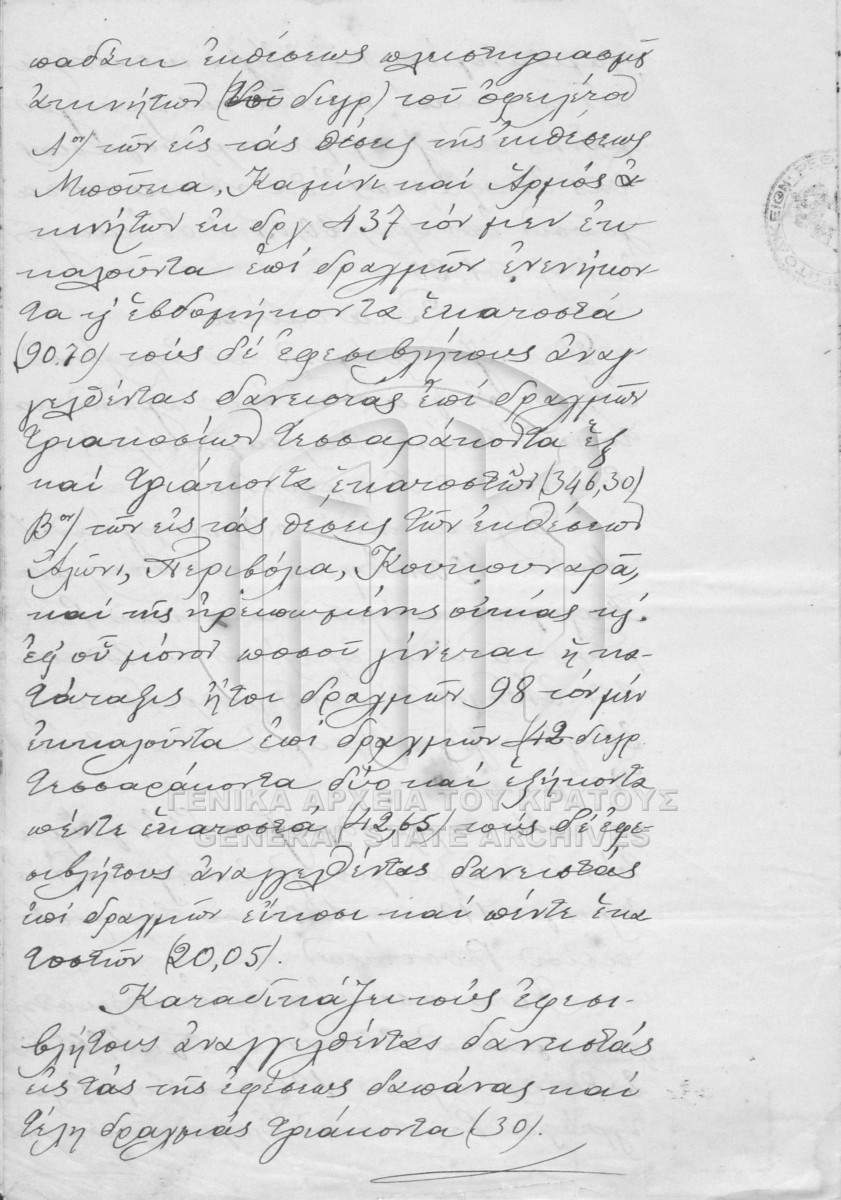 παδάκι ἐκθέσεως πλειστηριασμοῦ
ἀκινήτων (τοῦ διεγρ) τοῦ ὀφειλέτου
Αον) τῶν εἰς τάς θέσεις τῆς ἐκθέσεως
Μπούκα, Καμίνι καί Ἁρμός ἀ-
κινήτων ἐκ δρχ 437 τόν μεν ἐκ-
καλοῦντα ἐπί δραχμῶν ἐνενήκον
τα κ ἑβδομήκοντα ἑκατοστά
(90.70) τούς δέ ἐφεσιβλήτους ἀναγ-
γελθέντας δανειστάς ἐπί δραχμῶν
τριακοσίων τεσσαράκοντα ἕξ
καί τριάκοντα ἑκατοστῶν (346,30)
Βον) τῶν εἰς τάς θέσεις τῶν ἐκθέσεων
Ἁλώνι, Περιβόλια, Κουκουναρᾶ,
καί τῆς ἠρειπωμένης οἰκίας κλ.
ἐφ' οὗ μόνον ποσοῦ γίνεται ἡ κα-
τάταξις ἤτοι δραχμῶν 98 τόν μέν
ἐκκαλοῦντα ἐπί δραχμῶν (42 διεγρ
τεσσαράκοντα δύο καί ἑξήκοντα
πέντε ἑκατοστά (42,65) τούς δέ ἐφε-
σιβλήτους ἀναγγελθέντας δανειστάς
ἐπί δραχμῶν εἴκοσι καί πέντε ἑκα
τοστῶν (20,05).
Καταδικάζει τούς ἐφεσι-
βλήτους ἀναγγελθέντας δανειστάς
εἰς τάς τῆς ἐφέσεως δαπάνας καί
τέλη δραχμάς τριάκοντα (30).
ΓΕΝΙΚΑ ΑΡΧΕΙΑ ΤΟΥ ΚΡΑΤΟΥΣ
GENERAL STATE ARCHIVES